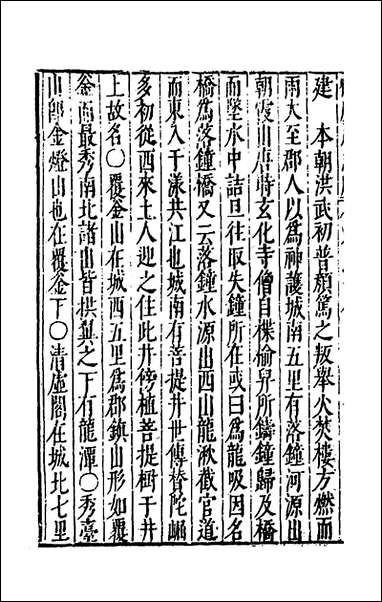 建　本朝洪武初普顏篤之叛舉火焚樓方燃而
雨大至郡人以爲神護城南五里有落鐘河源出
朝霞山唐時玄化寺僧自楪榆舁所鑄鐘歸及橋
而墜水中詰旦往取失鐘所在或曰爲龍吸因名
橋爲落鐘橋又云落鐘水源出西山龍湫截官道
而東入于漾共江也城南有菩提井世傳賛陀崛
多初從西來土人迎之住此井傍植菩提樹于井
上故名〇覆釜山在城西五里爲郡鎮山形如覆
釜而最秀南北諸山皆拱巽之下有龍潭〇秀臺
山卽金燈山也在覆釜下〇清虛閣在城北七里